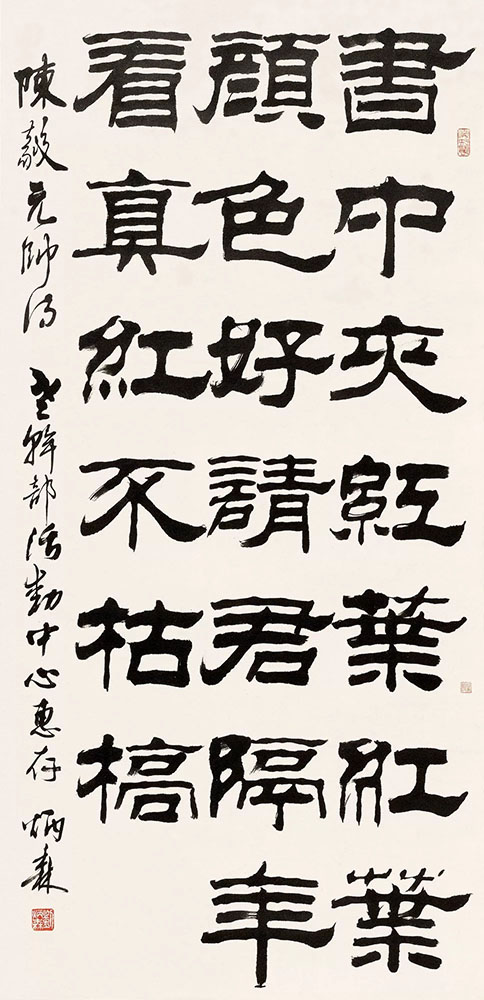 書中夾紅葉紅葉
顔色好請君隔年
看真紅不枯槁
陳毅元帥詩 老幹部活動中心惠存 炳森